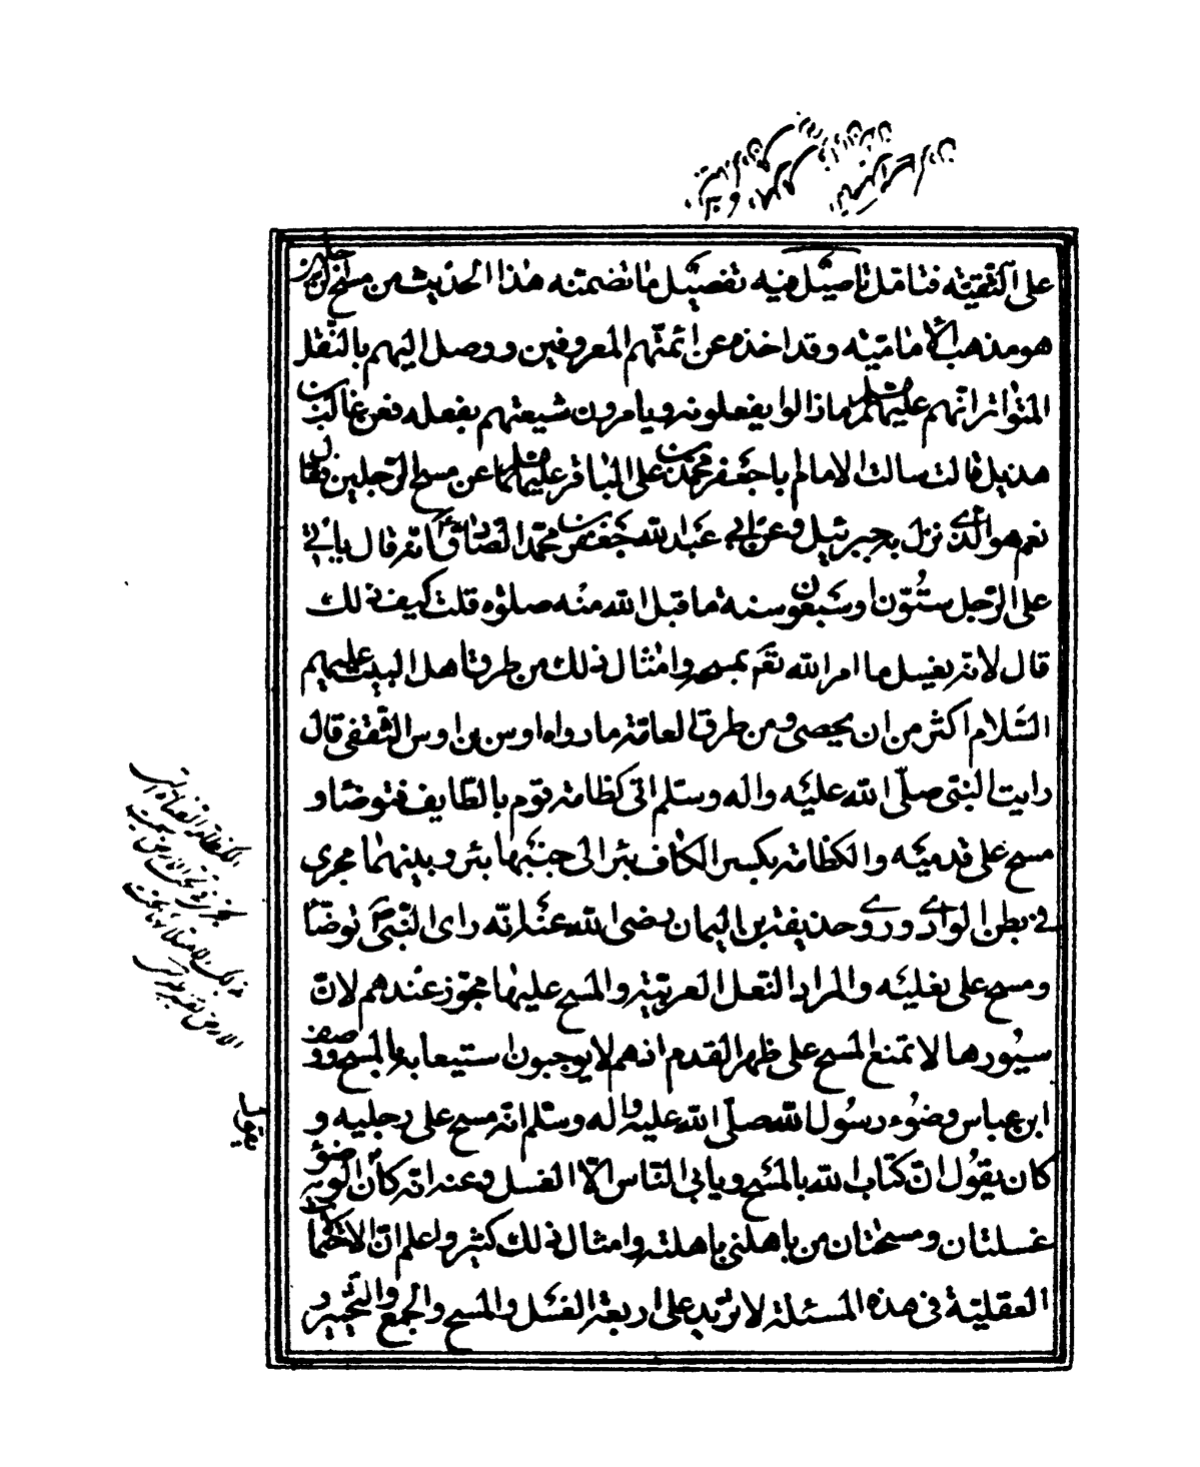 على التقية فتامل تاصيل فيه تفصيل ما تضمنه هذا الحديث من مسح الرجلين
هو مذهب الامامية وقد اخذه عن ائمتهم المعروفين ووصل اليهم بالنقل
المتواتر انهم عليهم السلام ما ذالوا يفعلونه ويامرون شيعتهم بفعله فعن غالب بن
هذيل قال سالت الامام با جعفر محمد بن على الباقر عليهما السلام عن مسح الرجلين فقال
نعم هو الذى نزل به جبرئيل وعن ابى عبد الله جعفر بن محمد الصادق ع انه قال ياتى
على الرجل ستون او سبعون سنة ما قبل الله منه صلوة قلت كيف ذلك
قال لانه يغسل ما امر الله تعم بمسحه وامثال ذلك من طرق اهل البيت عليهم
السلام اكثر من ان يحصى ومن طرق العامة ما رواه اوس بن اوس الثقفى قال
رايت النبى صلى الله عليه واله وسلم اتى كظامة قوم بالطايف فتوضا و
مسح على قدميه والكظامة بكسر الكاف بئر الى جنبها بئر وبينهما مجرى
فى بطن الوادى وروى حذيفة بن اليمان رضى الله عنه انه راى النبى ص توضا
ومسح على نعليه والمراد النعل العربية والمسح عليها مجوز عندهم لان
سيورها لا تمنع المسح على ظهر القدم اذ هم لا يوجبون استيعابه بالمسح ووصف
ابن عباس وضوء رسول الله صلى الله عليه واله وسلم انه مسح على رجليه و
كان يقول ان كتاب الله بالمسح ويابى الناس الا الغسل وعنه انه كان يقول الوضوء
غسلتان ومسحتان من باهلنى باهلته وامثال ذلك كثير واعلم ان الاحتمالات
العقلية فى هذه المسئلة لا تزيد على اربعة الغسل والمسح والجمع والتخيير
يقول